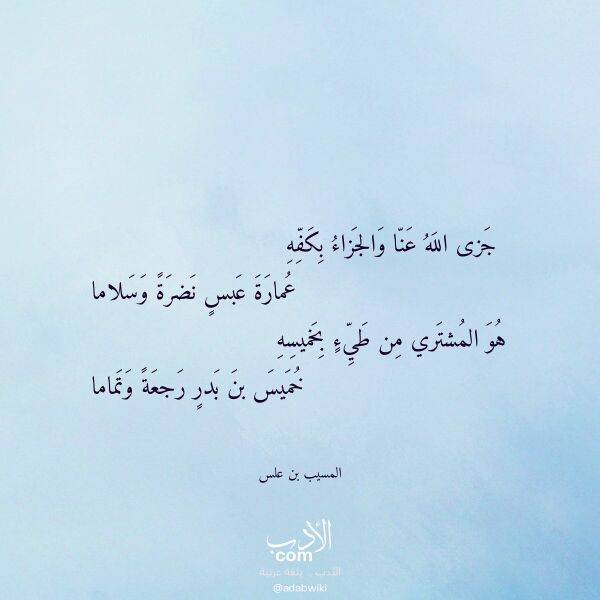 جَزى اللَهُ عَنّا وَالجَزاءُ بِكَفِّهِ
عُمارَةَ عَبسٍ نَضرَةً وَسَلاما
هُوَ المُشتَري مِن طَيِّءٍ بِخَميسِهِ
خُمَيسَ بنَ بَدرٍ رَجعَةً وَتَماما
المسيب بن علس
الأدب
com
الأدب .. بلغة عربية
@adabwiki